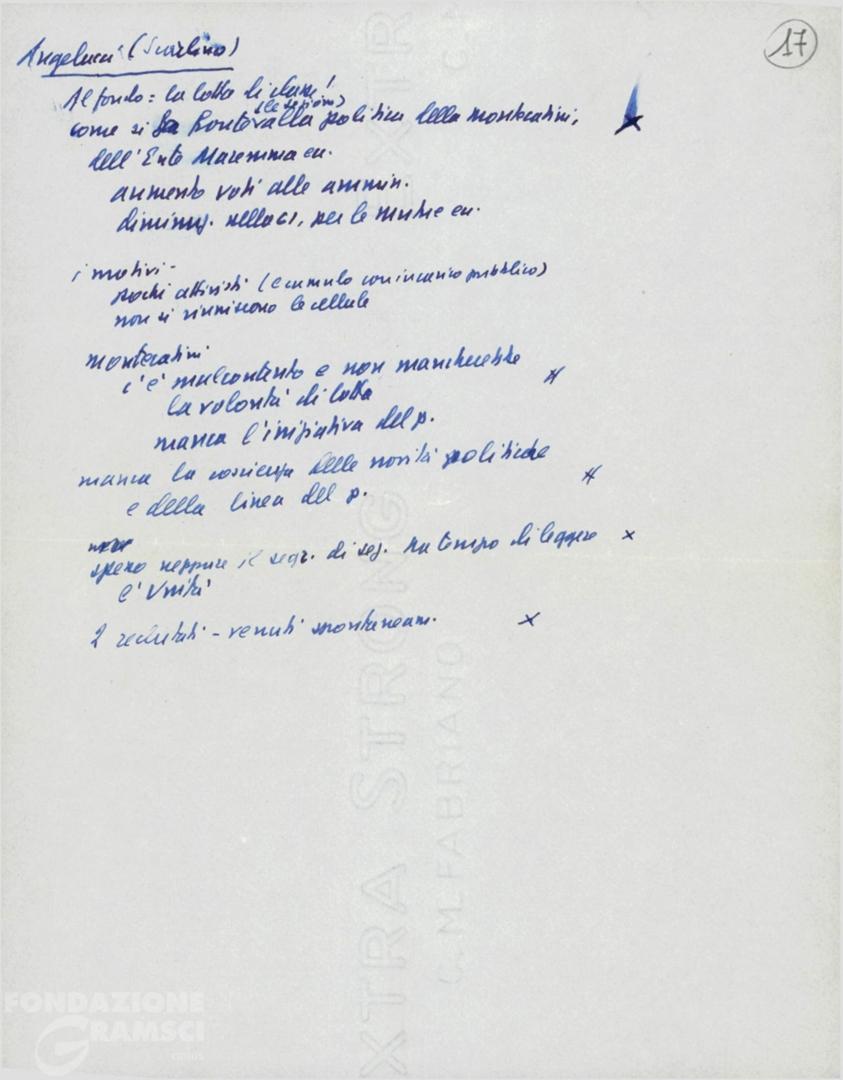 17
Angelucci (Scarlino)
Al fondo: la lotta di classe!
(le sezioni)
come si fa fronte alla politica della Montecatini,
dell'Ente Maremma ecc.
aumento voti alle ammin.
diminuz. nella CI, per le mutue ecc.
i motivi -
pochi attivisti (e cumulo con incarico pubblico)
non si riuniscono le cellule
Montecatini
c'è malcontento e non mancherebbe
la volontà di lotta
manca l'iniziativa del p.
manca la coscienza delle novità politiche
e della linea del p.
spesso neppure il segr. di sez. ha tempo di leggere x
l'Unità
2 reclutati - venuti spontaneam. x
EXTRA STRONG
C. M. FABRIANO
FONDAZIONE
GRAMSCI
onlus